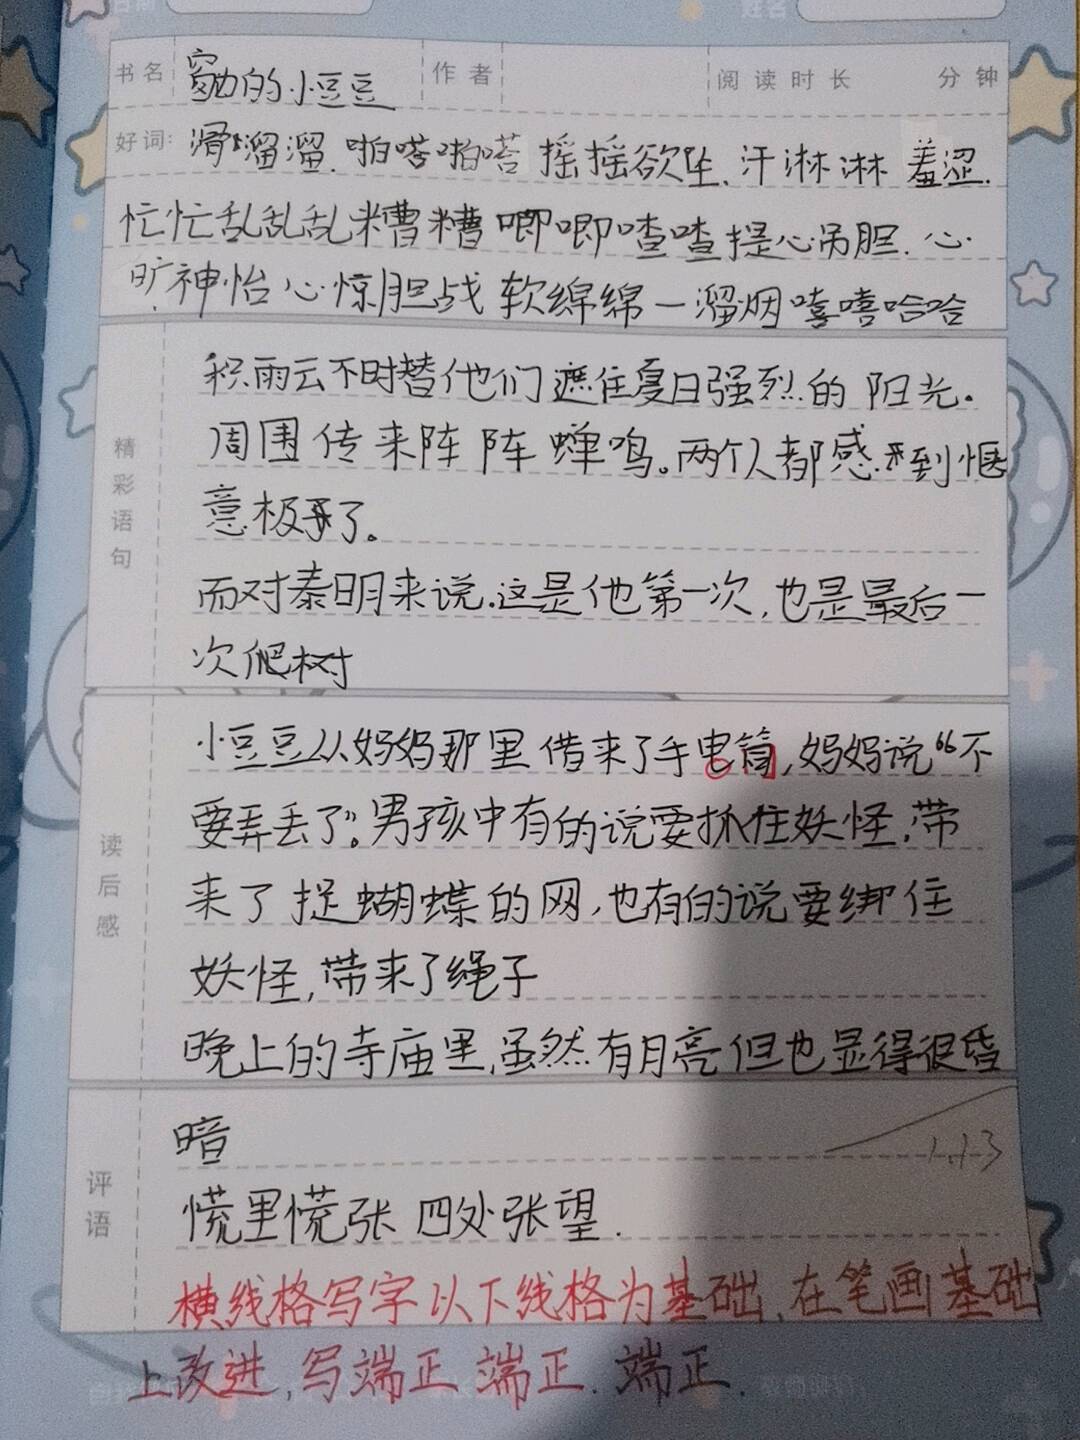 书名 窗边的小豆豆 作者 阅读时长 分钟
好词: 滑溜溜.啪嗒啪嗒 摇摇欲坠.汗淋淋 羞涩.
忙忙乱乱乱糟糟唧唧喳喳提心吊胆.心
旷神怡 心惊胆战 软绵绵 一溜烟嘻嘻哈哈
精彩语句
积雨云不时替他们遮住夏日强烈的阳光。
周围传来阵阵蝉鸣。两个人都感到惬
意极了。
而对泰明来说.这是他第一次,也是最后一
次爬树
读后感
小豆豆从妈妈那里借来了手电筒,妈妈说“不
要弄丢了”。男孩中有的说要抓住妖怪.带
来了捉蝴蝶的网,也有的说要绑住
妖怪,带来了绳子
晚上的寺庙里,虽然有月亮但也显得很昏
评语
暗
1.13
慌里慌张 四处张望.
横线格写字以下线格为基础,在笔画基础
上改进,写端正.端正.端正.